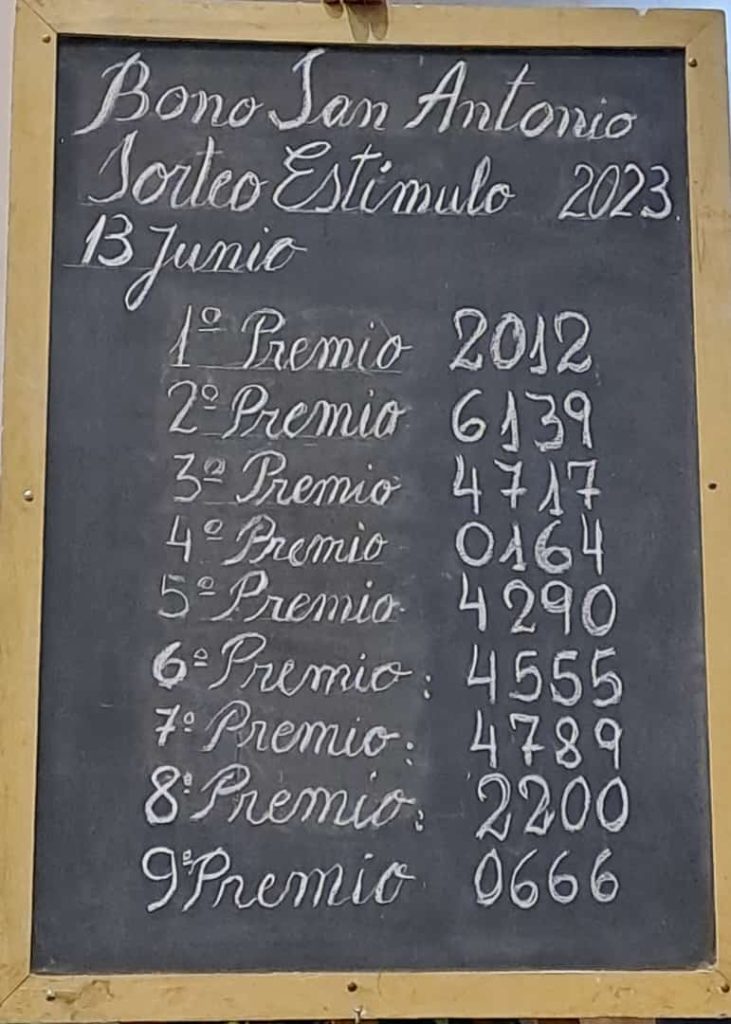 Bono San Antonio
Sorteo Estimulo 2023
13 Junio
1º Premio 2012
2º Premio 6139
3º Premio 4717
4º Premio 0164
5º Premio 4290
6º Premio: 4555
7º Premio: 4789
8º Premio: 2200
9º Premio 0666